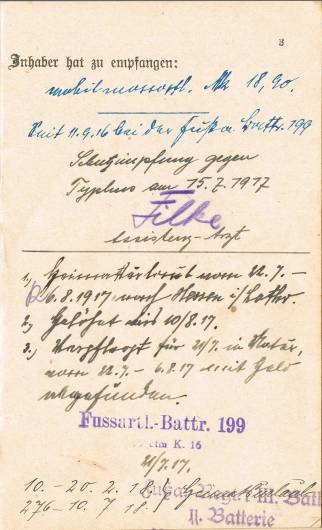 3
Inhaber hat zu empfangen:
mobilmässi. Mk 18,90.
Seit 11.9.16 bei der Fußa. Battr. 199
Schutzimpfung gegen
Typhus am 15.7.1917
Filke
Assistenz-Arzt
1) Heimaturlaub vom 22.7. –
6.8.1917 nach
2) Gelöhnt bis 10/8.17.
3.) Verpflegt für 21/7. in Natur,
vom 22.7. – 6.8.17 mit Geld
abgefunden.
Fussartl.-Battr. 199
K. 16
21/7.17.
10. – 20. 2. 18.
276 – 10. 7. 18
III. Batl
11. Batterie